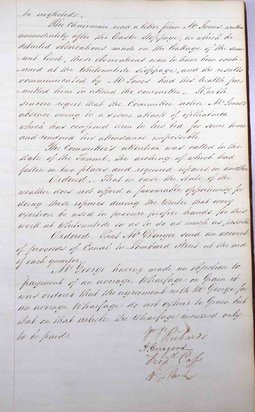 be negligible.
The Chairman read a letter from Mr Jones written
immediately after the Easter Stoppage, in which he
detailed observations made on the leakage of the sum-
mit level, these observations were to have been contin-
ued at the Whitsuntide stoppage, and the results
communicated by Mr Jones had his health per-
mitted him to attend the committee. It is with
sincere regret that the Committee notice Mr Jones's
absence owing to a severe attack of
which had confined him to his bed for some time
and rendered his attendance impossible.
The Committee's attention was called to the
state of the Tunnel, the arching of which had
fallen in two places and required repairs in another.
Ordered. That in case the State of the
weather does not afford a favourable opportunity for
doing these repairs during the Winter that every
exertion be used to procure proper hands for this
work at Whitsuntide so as to do as much as possible.
Ordered. That Mr George send an account
of proceeds of Canal to Lombard Street at the end
of each quarter.
Mr George having made an objection to
payment of an average Wharfage on Grain it
was ordered that the agreement with Mr George for
an average Wharfage do not extend to Grain but
that on that article the Wharfage incurred only
to be paid.
Richards